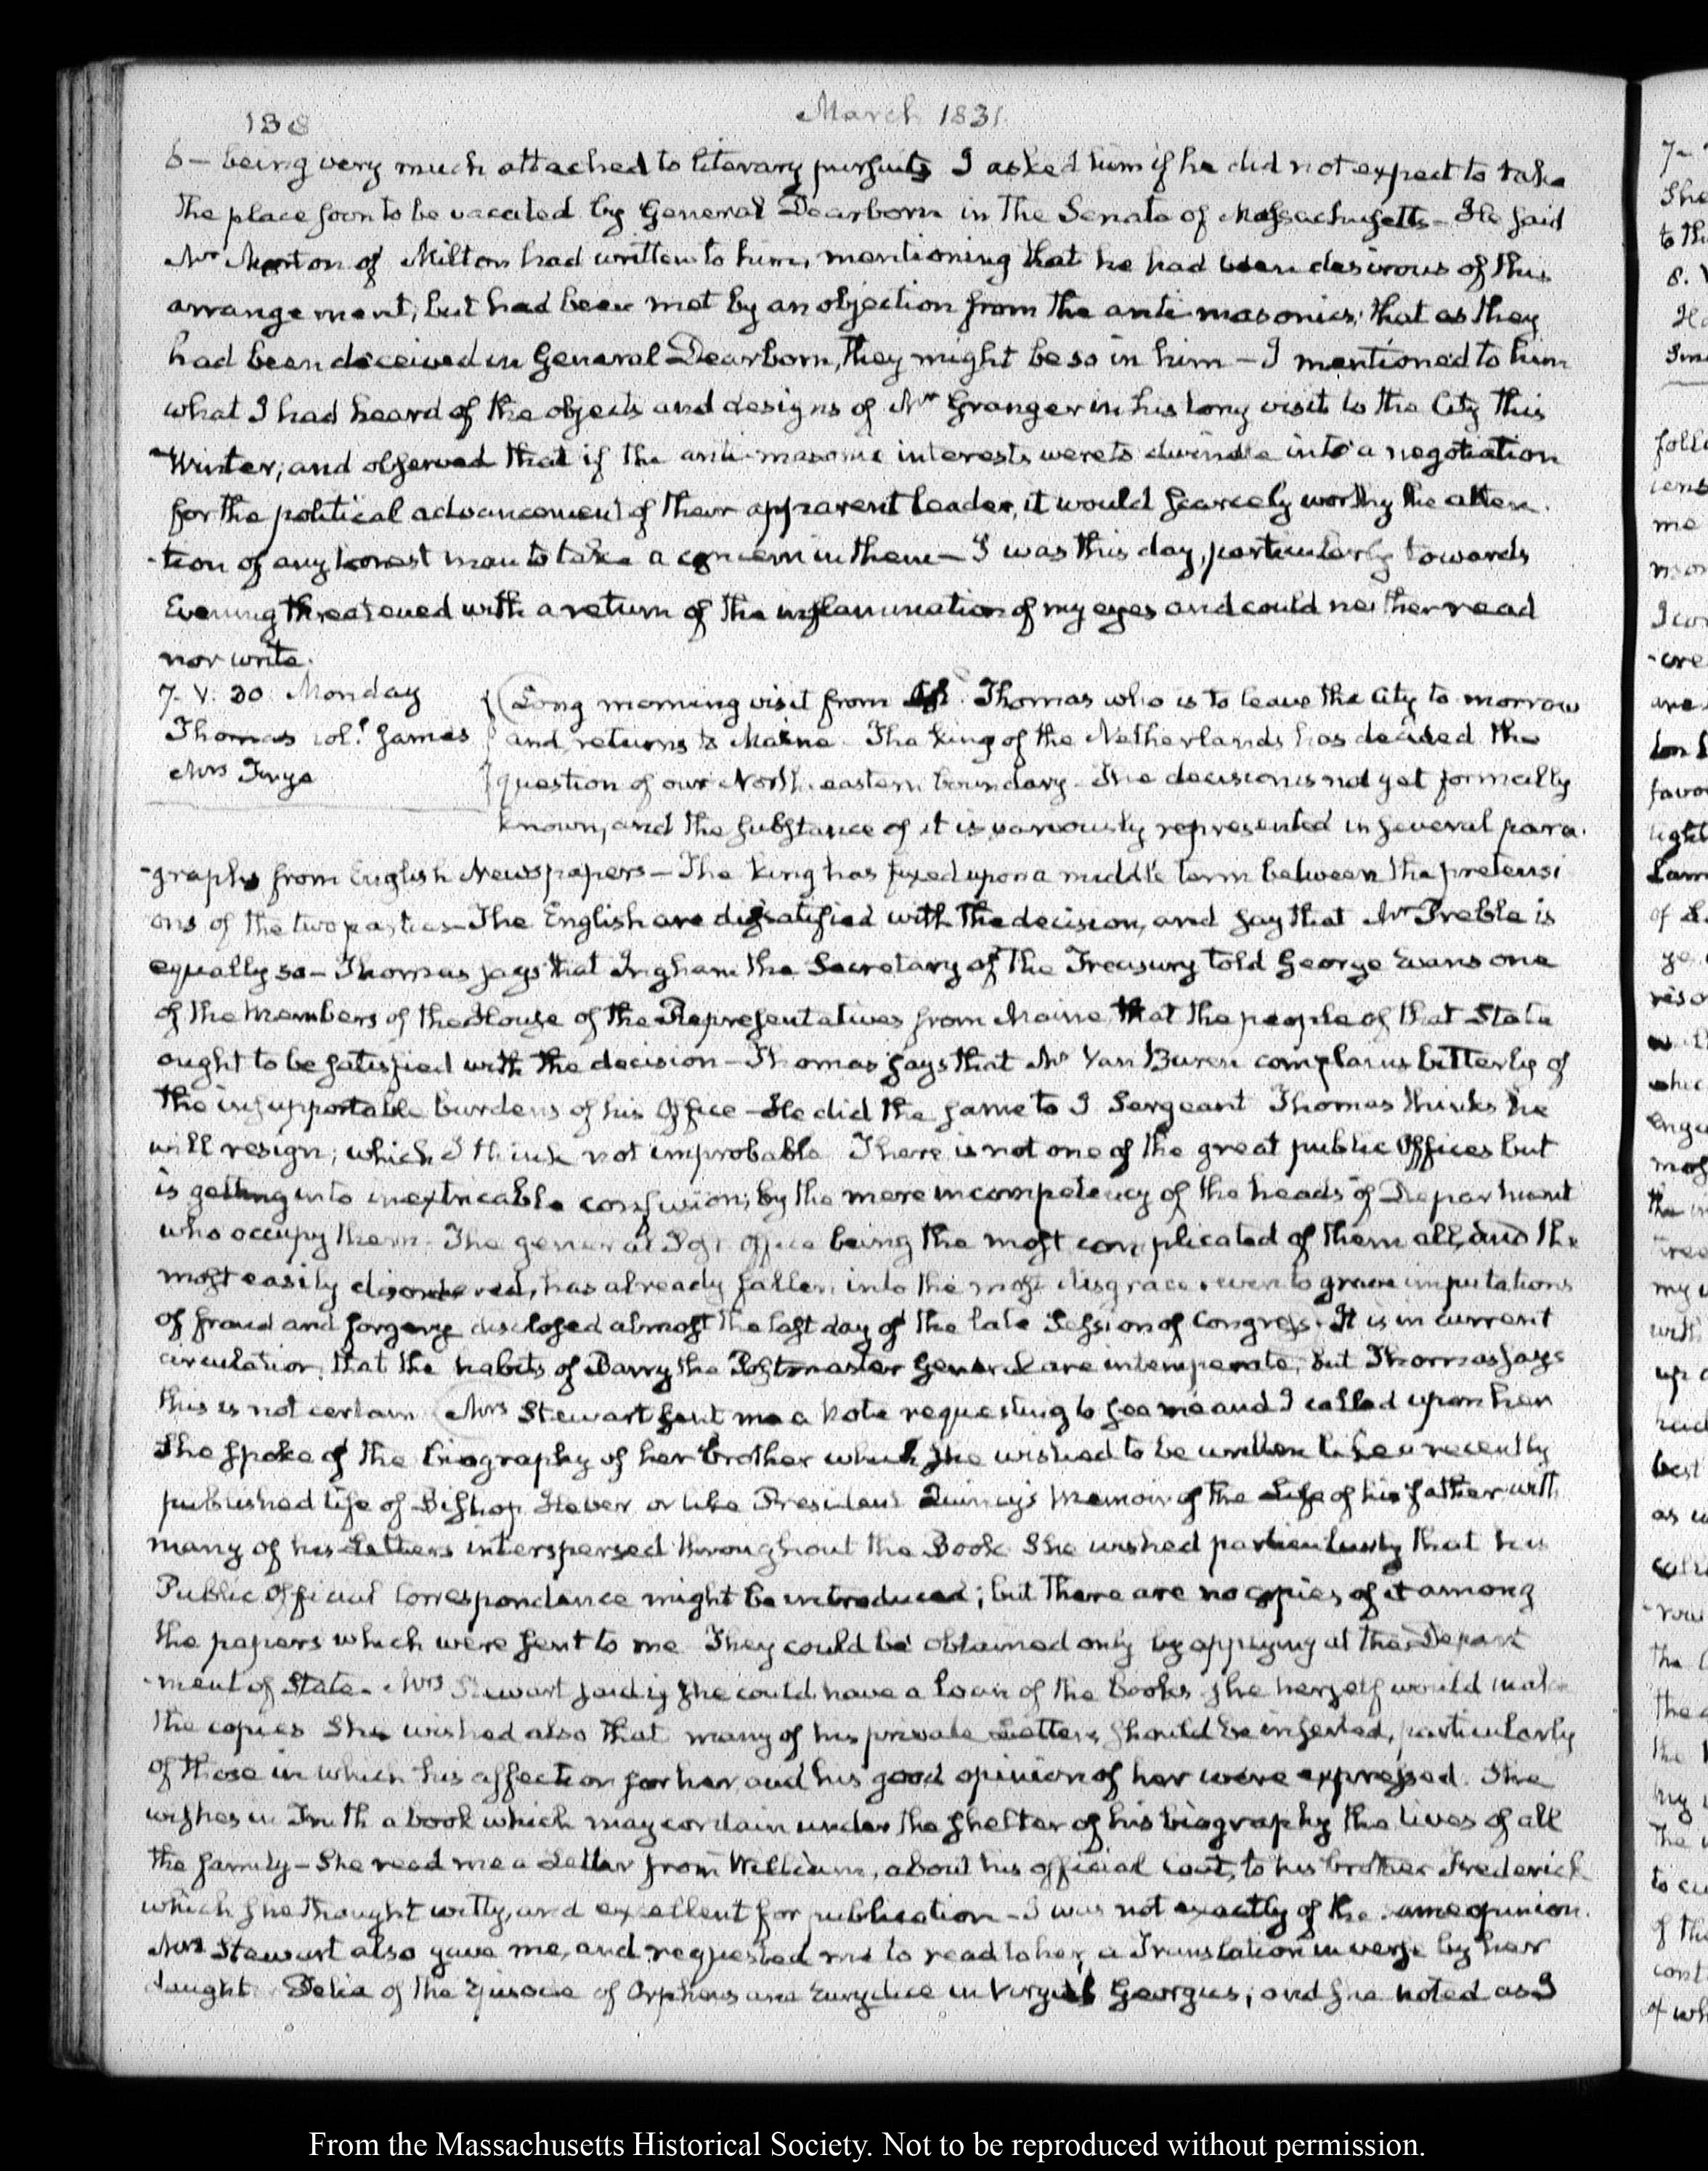 138
March 1831
6 — being very much attached to literary pursuits I asked him if he did not expect to take
the place soon to be vacated by General Dearborn in the Senate of Massachusetts — He said
Mr Morton of Milton had written to him, mentioning that he had been desirous of this
arrangement, but had been met by an objection from the anti-masonics; that as they
had been deceived in General Dearborn, they might be so in him — I mentioned to him
what I had heard of the objects and designs of Mr Granger in his long visit to the City this
Winter, and observed that if the anti-masonic interests were to dwindle into a negotiation
for the political advancement of their apparent leader, it would scarcely worthy the atten-
-tion of any honest man to take a concern in them — I was this day, particularly towards
Evening threatened with a return of the inflammation of my eyes and could neither read
nor write.
7. V. 30 Monday
Thomas Col. James
Mrs Frye
Long morning visit from Thomas who is to leave the City to-morrow
and returns to Maine. The King of the Netherlands has decided the
question of our North-eastern boundary. The decision is not yet formally
known, and the substance of it is variously represented in several para-
-graphs from English Newspapers — The King has fixed upon a middle term between the pretensi
ons of the two parties — The English are dissatisfied with the decision, and say that Mr Preble is
equally so — Thomas says that Ingham the Secretary of the Treasury told George Evans one
of the Members of the House of the Representatives from Maine, that the people of that State
ought to be satisfied with the decision — Thomas says that Mr Van Buren complains bitterly of
the insupportable burdens of his Office — He did the same to J Sergeant Thomas thinks he
will resign; which I think not improbable There is not one of the great public Offices but
is getting into inextricable confusion, by the mere incompetency of the heads of Department
who occupy them. The general Post office being the most complicated of them all, and the
most easily disordered, has already fallen into the most disgrace even to grave imputations
of fraud and forgery disclosed almost the last day of the late Session of Congress. It is in current
circulation, that the habits of Barry the Postmaster General are intemperate; but Thomas says
this is not certain Mrs Stewart sent me a Note requesting to see me and I called upon her
She spoke of the biography of her brother which she wished to be written like a recently
published life of Bishop Heber or like President Quincy's Memoir of the Life of his father with
many of his Letters interspersed throughout the Book She wished particularly that his
Public Official Correspondence might be introduced; but there are no copies of it among
the papers which were sent to me They could be obtained only by applying at the Depart
-ment of State. Mrs Stewart said if she could have a loan of the Books she herself would make
the copies She wished also that many of his private Letters should be inserted, particularly
of those in which his affection for her and his good opinion of her were expressed. She
wishes in Truth a book which may contain under the shelter of his biography the lives of all
the family — She read me a Letter from William, about his official coat, to his brother Frederick
which she thought witty, and excellent for publication — I was not exactly of the same opinion.
Mrs Stewart also gave me, and requested me to read to her, a Translation in verse by her
daught Delia of the Episode of Orpheus and Eurydice in Virgil's Georgics; and she noted as I
From the Massachusetts Historical Society. Not to be reproduced without permission.